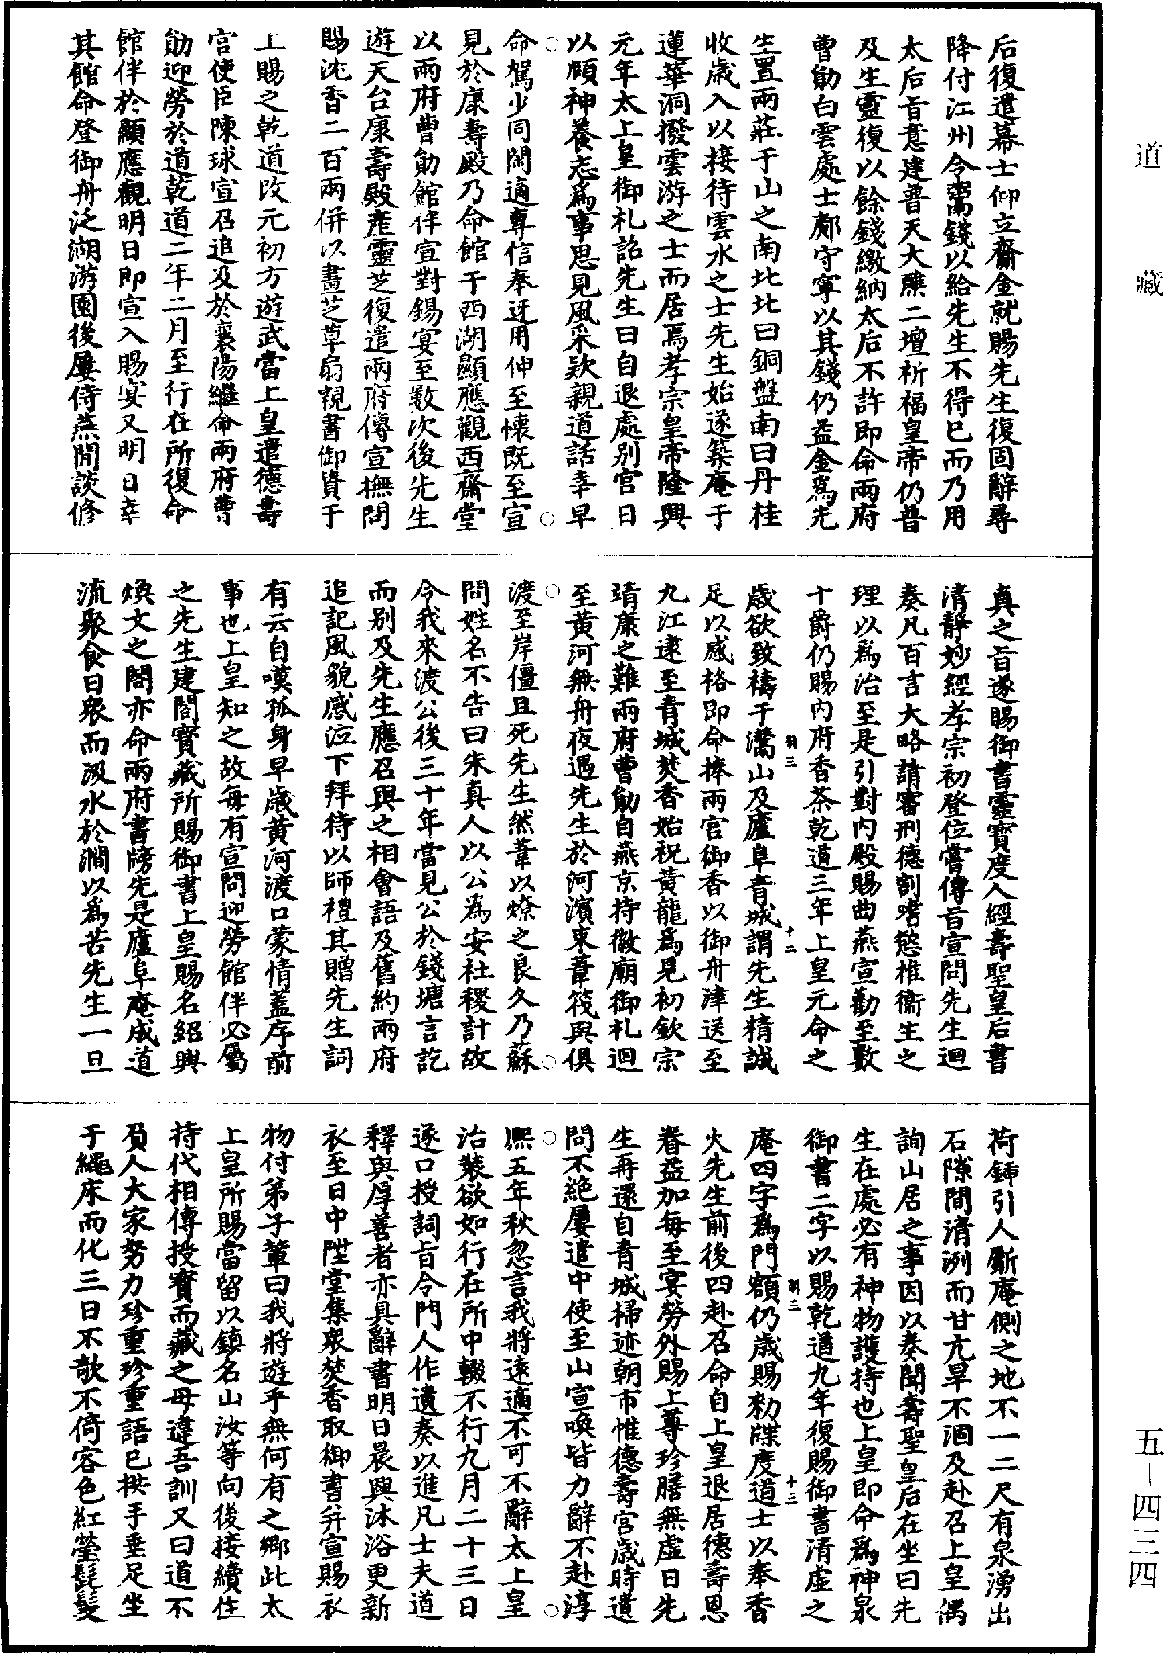 道藏
五—四三四
后復遣幕士仰立齋金就賜先生復固辭尋
降付江州令鬻錢以給先生不得已而乃用
太后旨意建普天大醮二壇祈福皇帝仍普
及生靈復以餘錢繳納太后不許即命兩府
曹勛白雲處士郡守寧以其錢仍益金爲先
生置兩莊于山之南北北曰銅盤南曰丹桂
收歲入以接待雲水之士先生始遂築庵于
蓮華洞撥雲游之士而居焉孝宗皇帝隆興
元年太上皇御札詔先生曰自退處別宮日
以頤神養志爲事思見風采欵親道話幸早
命駕少同閒適專信奉迓用伸至懷既至宣
見於康壽殿乃命館于西湖顯應觀西齋堂
以兩府曹勛館伴宣對錫宴至數次後先生
遊天台康壽殿產靈芝復遣兩府傳宣撫問
賜沈香二百兩併以畫芝草扇親書御贊于
上賜之乾道改元初方遊武當上皇遣德壽
宮使臣陳球宣召追及於襄陽繼命兩府曹
勛迎勞於道乾道二年二月至行在所復命
館伴於顯應觀明日即宣入賜宴又明日幸
其館命登御舟泛湖游園後屢侍燕閒談修
真之旨遂賜御書靈寶度人經壽聖皇后書
清靜妙經孝宗初登位嘗傳旨宣問先生迴
奏凡百言大略請審刑德割嗜慾推衞生之
理以爲治至是引對内殿賜曲燕宣勸至數
十爵仍賜内府香茶乾道三年上皇元命之
歲欲致禱于灊山及廬阜青城謂先生精誠
足以感格即命捧兩宮御香以御舟津送至
九江逮至青城焚香始祝黃龍爲見初欽宗
靖康之難兩府曹勛自燕京持徽廟御札迴
至黃河無舟夜遇先生於河濱束葦筏與俱
渡至岸僵且死先生然葦以燎之良久乃蘇
問姓名不告曰朱真人以公爲安社稷計故
令我來渡公後三十年當見公於錢塘言訖
而別及先生應召與之相會語及舊約兩府
追記風貌感泣下拜待以師禮其贈先生詞
有云自嘆孤身早歲黃河渡口蒙情盖序前
事也上皇知之故每有宣問迎勞館伴必屬
之先生建閣寶藏所賜御書上皇賜名紹興
煥文之閣亦命兩府書牓先是廬阜庵成道
流聚食日衆而汲水於澗以爲苦先生一旦
荷鍤引人斸庵側之地不一二尺有泉湧出
石隙間清洌而甘亢旱不涸及赴召上皇偶
詢山居之事因以奏聞壽聖皇后在坐曰先
生在處必有神物護持也上皇即命爲神泉
御書二字以賜乾道九年復賜御書清虛之
庵四字爲門額仍歲賜勑牒度道士以奉香
火先生前後四赴召命自上皇退居德壽恩
眷益加每至宴勞外賜上尊珍膳無虛日先
生再還自青城掃迹朝市惟德壽宮歲時遣
問不絶屢遣中使至山宣喚皆力辭不赴淳
熙五年秋忽言我將遠適不可不辭太上皇
治裝欲如行在所中輟不行九月二十三日
遂口授詞旨令門人作遺奏以進凡士夫道
釋與厚善者亦具辭書明日晨興沐浴更新
衣至日中陞堂集衆焚香取御書并宣賜衣
物付弟子輩曰我將遊乎無何有之鄉此太
上皇所賜當留以鎮名山汝等向後接續住
持代相傳授寶而藏之毋違吾訓又曰道不
負人大家努力珍重珍重語已拱手垂足坐
于繩床而化三日不欹不倚容色紅瑩髭髮